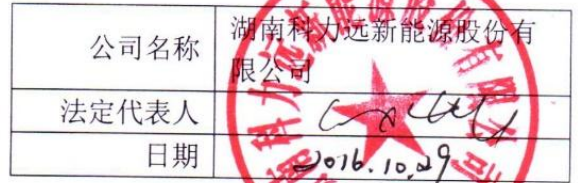 公司名称
湖南科力远新能源股份有
限公司
法定代表人
日期
2016.10.29